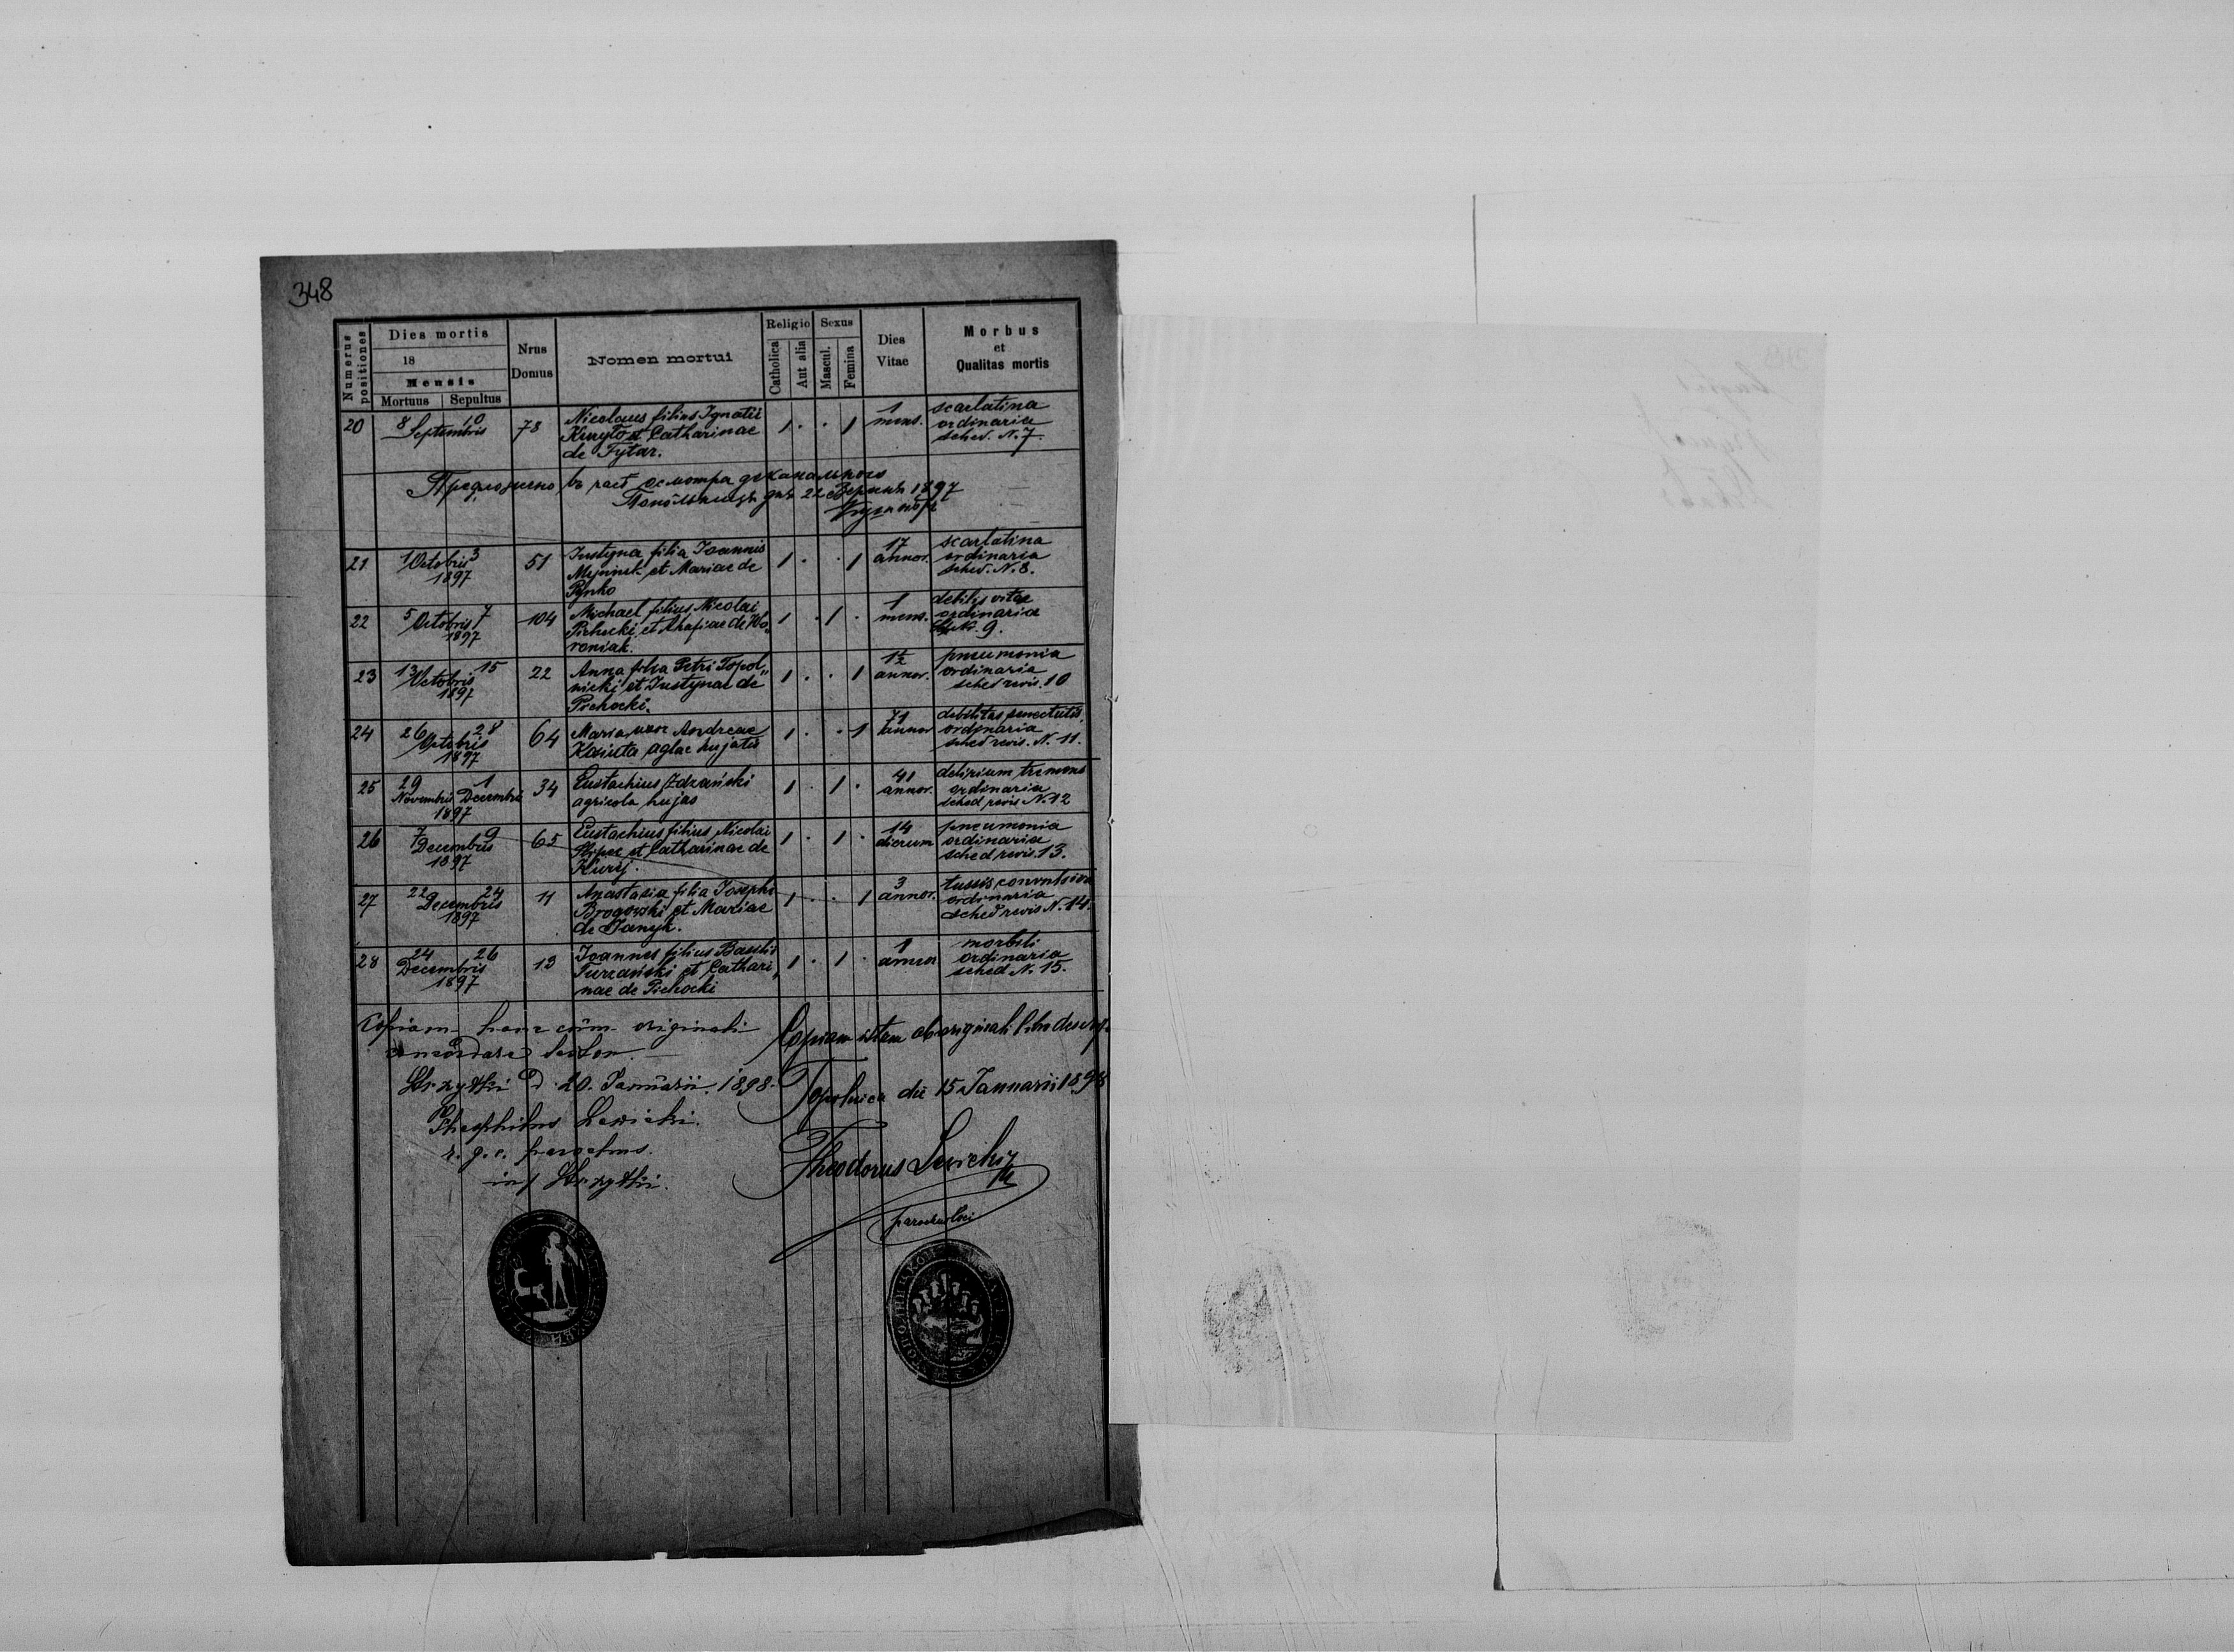 348
Numerus positiones
Dies mortis
18
Mensis
Mortuus Sepultus
Nrus Domus
Nomen mortui
Religio
Catholica
Aut alia
Sexus
Mascul.
Femina
Dies Vitae
Morbus
et
Qualitas mortis
20 8 Septembris 10 78 Nicolaus filius Ignatii 1 . . 1 1 mens. scarlatina
et Catharinae ordinaria
de Tytar. sched. N. 7
22 1897
21 1 Octobris 3 51 Justyna filia Joannis 1 . . 1 17 annor. scarlatina
1897 et Mariae de ordinaria
sched. N. 8.
22 5 Octobris 7 104 Michael filius Nicolai 1 . 1 . 1 mens. debilis vitae
1897 Pichocki et Ahafiae de Wo„ ordinaria
roniak. N. 9.
23 13 Octobris 15 22 Anna filia Petri Topol„ 1 . . 1 1½ annor. pneumonia
1897 nicki et Justynae de ordinaria
Pichocki. sched revis. 10
24 26 Octobris 28 64 Maria uxor Andreae 1 . . 1 71 annor debilitas senectutis
1897 aglae hujatis ordinaria
sched revis. N. 11.
25 29 Novembris 1 Decembri 34 Eustachius Zdzański 1 . 1 . 41 annor. delirium tremens
1897 agricola hujas ordinaria
sched revis N. 12
26 7 Decembris 9 65 Eustachius filius Nicolai 1 . 1 . 14 dierum pneumonia
1897 et Catharinae de ordinaria
Kurij. sched revis. 13.
27 22 Decembris 24 11 Anastasia filia Josephi 1 . . 1 3 annor. tussis convulsiva
1897 Brogowski et Mariae ordinaria
de Danyk. sched revis N. 14.
28 24 Decembris 26 13 Joannes filius Basilii 1 . 1 . 1 morbili
1897 Turzański et Cathari„ ordinaria
nae de Pichocki sched N. 15.
Copiam hanc cum originali
concordare testor.
d. 20. Januarii 1898.
Theophilus Lewicki.
r. g. c. parochus.
in
Copiam istam ab originali libro
Topolnica die 15 Januarii 1898
Theodorus Lewicki
parochus loci